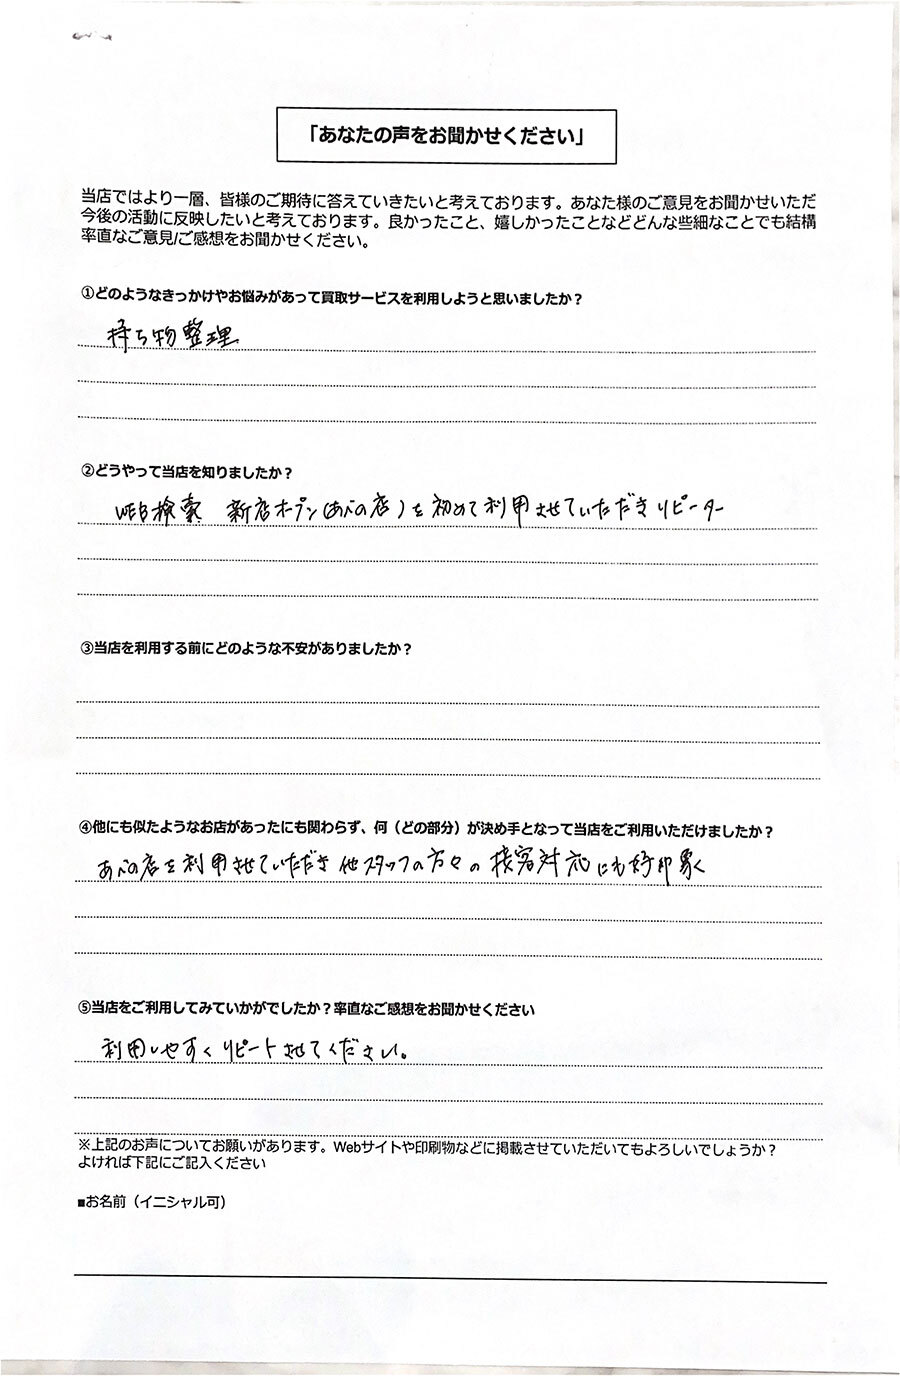 「あなたの声をお聞かせください」
当店ではより一層、皆様のご期待に答えていきたいと考えております。あなた様のご意見をお聞かせいただ
今後の活動に反映したいと考えております。良かったこと、嬉しかったことなどどんな些細なことでも結構
率直なご意見/ご感想をお聞かせください。
①どのようなきっかけやお悩みがあって買取サービスを利用しようと思いましたか？
持ち物整理
②どうやって当店を知りましたか？
WEB検索 新店オープン(あべの店)を初めて利用させていただきリピーター
③当店を利用する前にどのような不安がありましたか？
④他にも似たようなお店があったにも関わらず、何（どの部分）が決め手となって当店をご利用いただけましたか？
あべの店を利用させていただき他スタッフの方々の接客対応にも好印象く
⑤当店をご利用してみていかがでしたか？率直なご感想をお聞かせください
利用しやすくリピートさせてください。
※上記のお声についてお願いがあります。Webサイトや印刷物などに掲載させていただいてもよろしいでしょうか？
よければ下記にご記入ください
■お名前（イニシャル可）